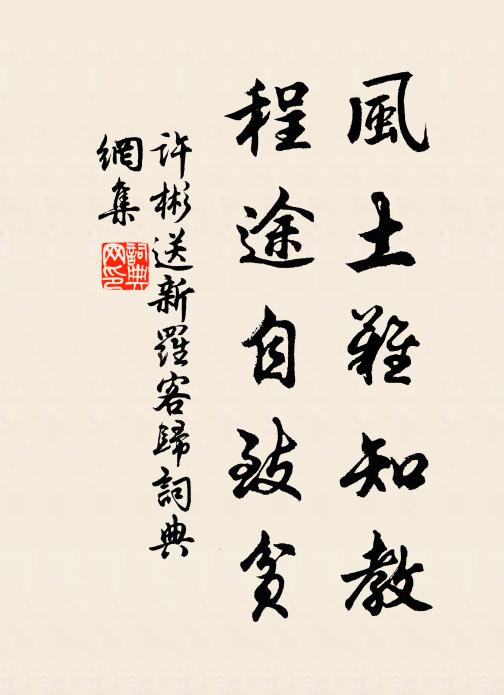 風土難知教
程途自致貧
許彬送新羅客歸詞典
網集
詞典
网印